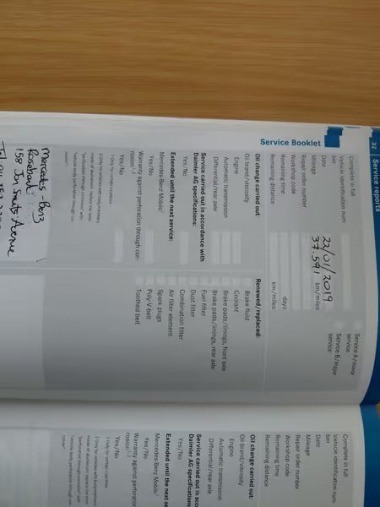 32 | Service reports
Service Booklet
Complete in full
Vehicle identification num
ber
Date 22/01/2019
Mileage 39 591 km/miles
Repair order number
Workshop code
Remaining time days
Remaining distance km/miles
Oil change carried out
Oil brand/viscosity
Engine
Automatic transmission
Differential/rear axle
Service carried out in accordance with
Daimler AG specifications:
Yes/No
Extended until the next service:
Mercedes-Benz Mobilo
Yes/No
Warranty against perforation through cor-
rosion
Yes/No
Service A/heavy
service
Service B/major
service
Renewed/replaced:
Brake fluid
Coolant
Brake pads/linings, front axle
Brake pads/linings, rear axle
Fuel filter
Dust filter
Combination filter
Air filter element
Spark plugs
Poly-V-belt
Toothed belt
Mercedes-Benz
Rosebank
158 Jan Smuts Avenue
Complete in full
Vehicle identification num
ber
Date
Mileage
Repair order number
Workshop code
Remaining time
Remaining distance
Oil change carried out:
Oil brand/viscosity
Engine
Automatic transmission
Differential/rear axle
Service carried out in acc
Daimler AG specifications
Yes/No
Extended until the next se
Mercedes-Benz Mobilo
Yes/No
Warranty against perforation
rosion
Yes/No